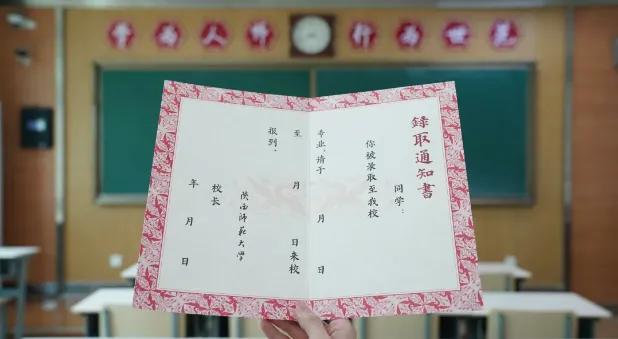 学为人师 行为世范
錄取通知書
同学：
你被录取至我校
专业，请于 月 日
至 月 日来校
报到。
陕西师范大学
校长
年 月 日